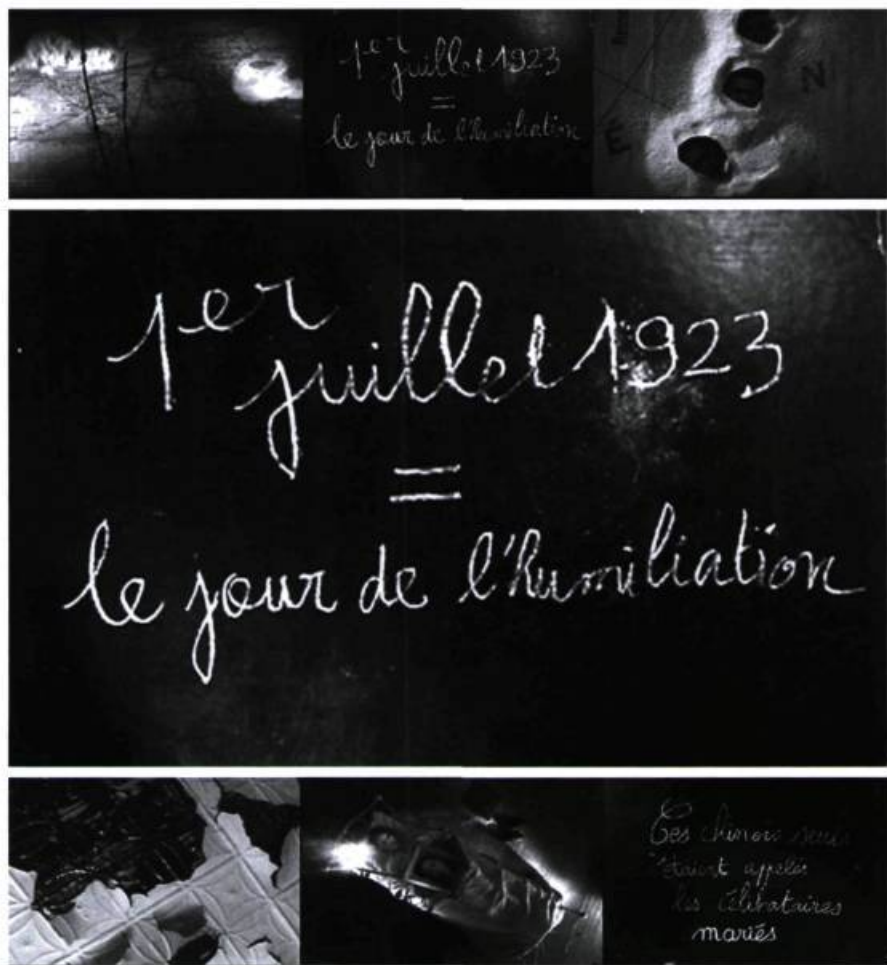 1er
juillet 1923
=
le jour de l'humiliation
E
N
1er
juillet 1923
=
le jour de l'humiliation
Ces chinois seuls
étaient appelés
les célibataires
mariés